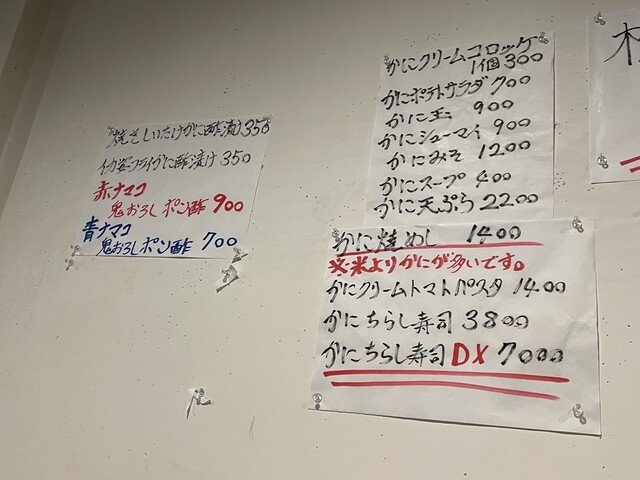 焼きしいたけかに酢漬け350
イカ姿フライかに酢漬け350
赤ナマコ
鬼おろしポン酢 900
青ナマコ
鬼おろしポン酢 700
かにクリームコロッケ
1個300
かにポテトサラダ 700
かに玉 900
かにシューマイ 900
かにみそ 1200
かにスープ 400
かに天ぷら 2200
かに焼めし 1400
※米よりかにが多いです。
かにクリームトマトパスタ 1400
かにちらし寿司 3800
かにちらし寿司DX 7000